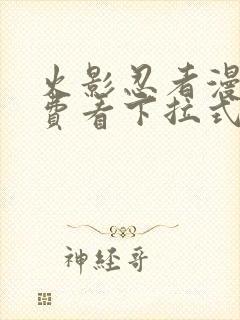 火影忍者漫
费看下拉式
神经哥